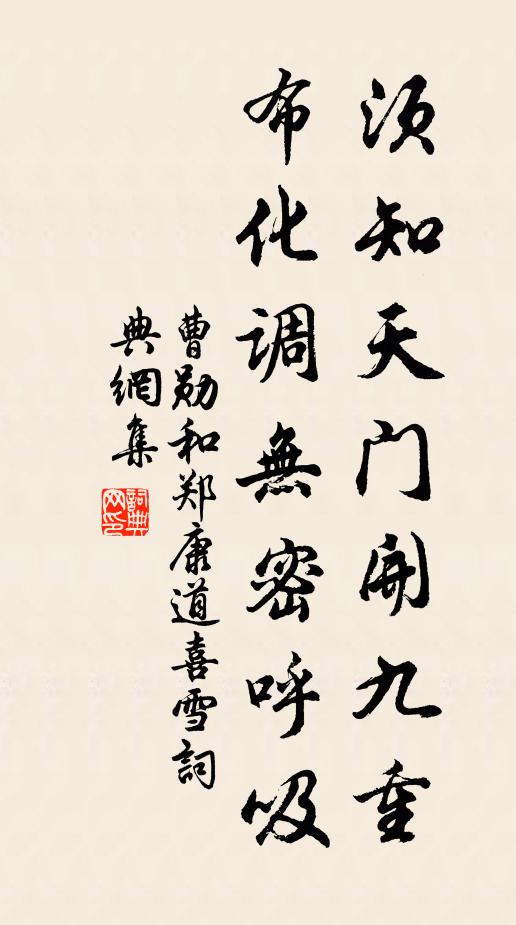 须知天门開九重
布化调無密呼吸
曹勋和郑康道喜雪詞
典網集
詞典网印